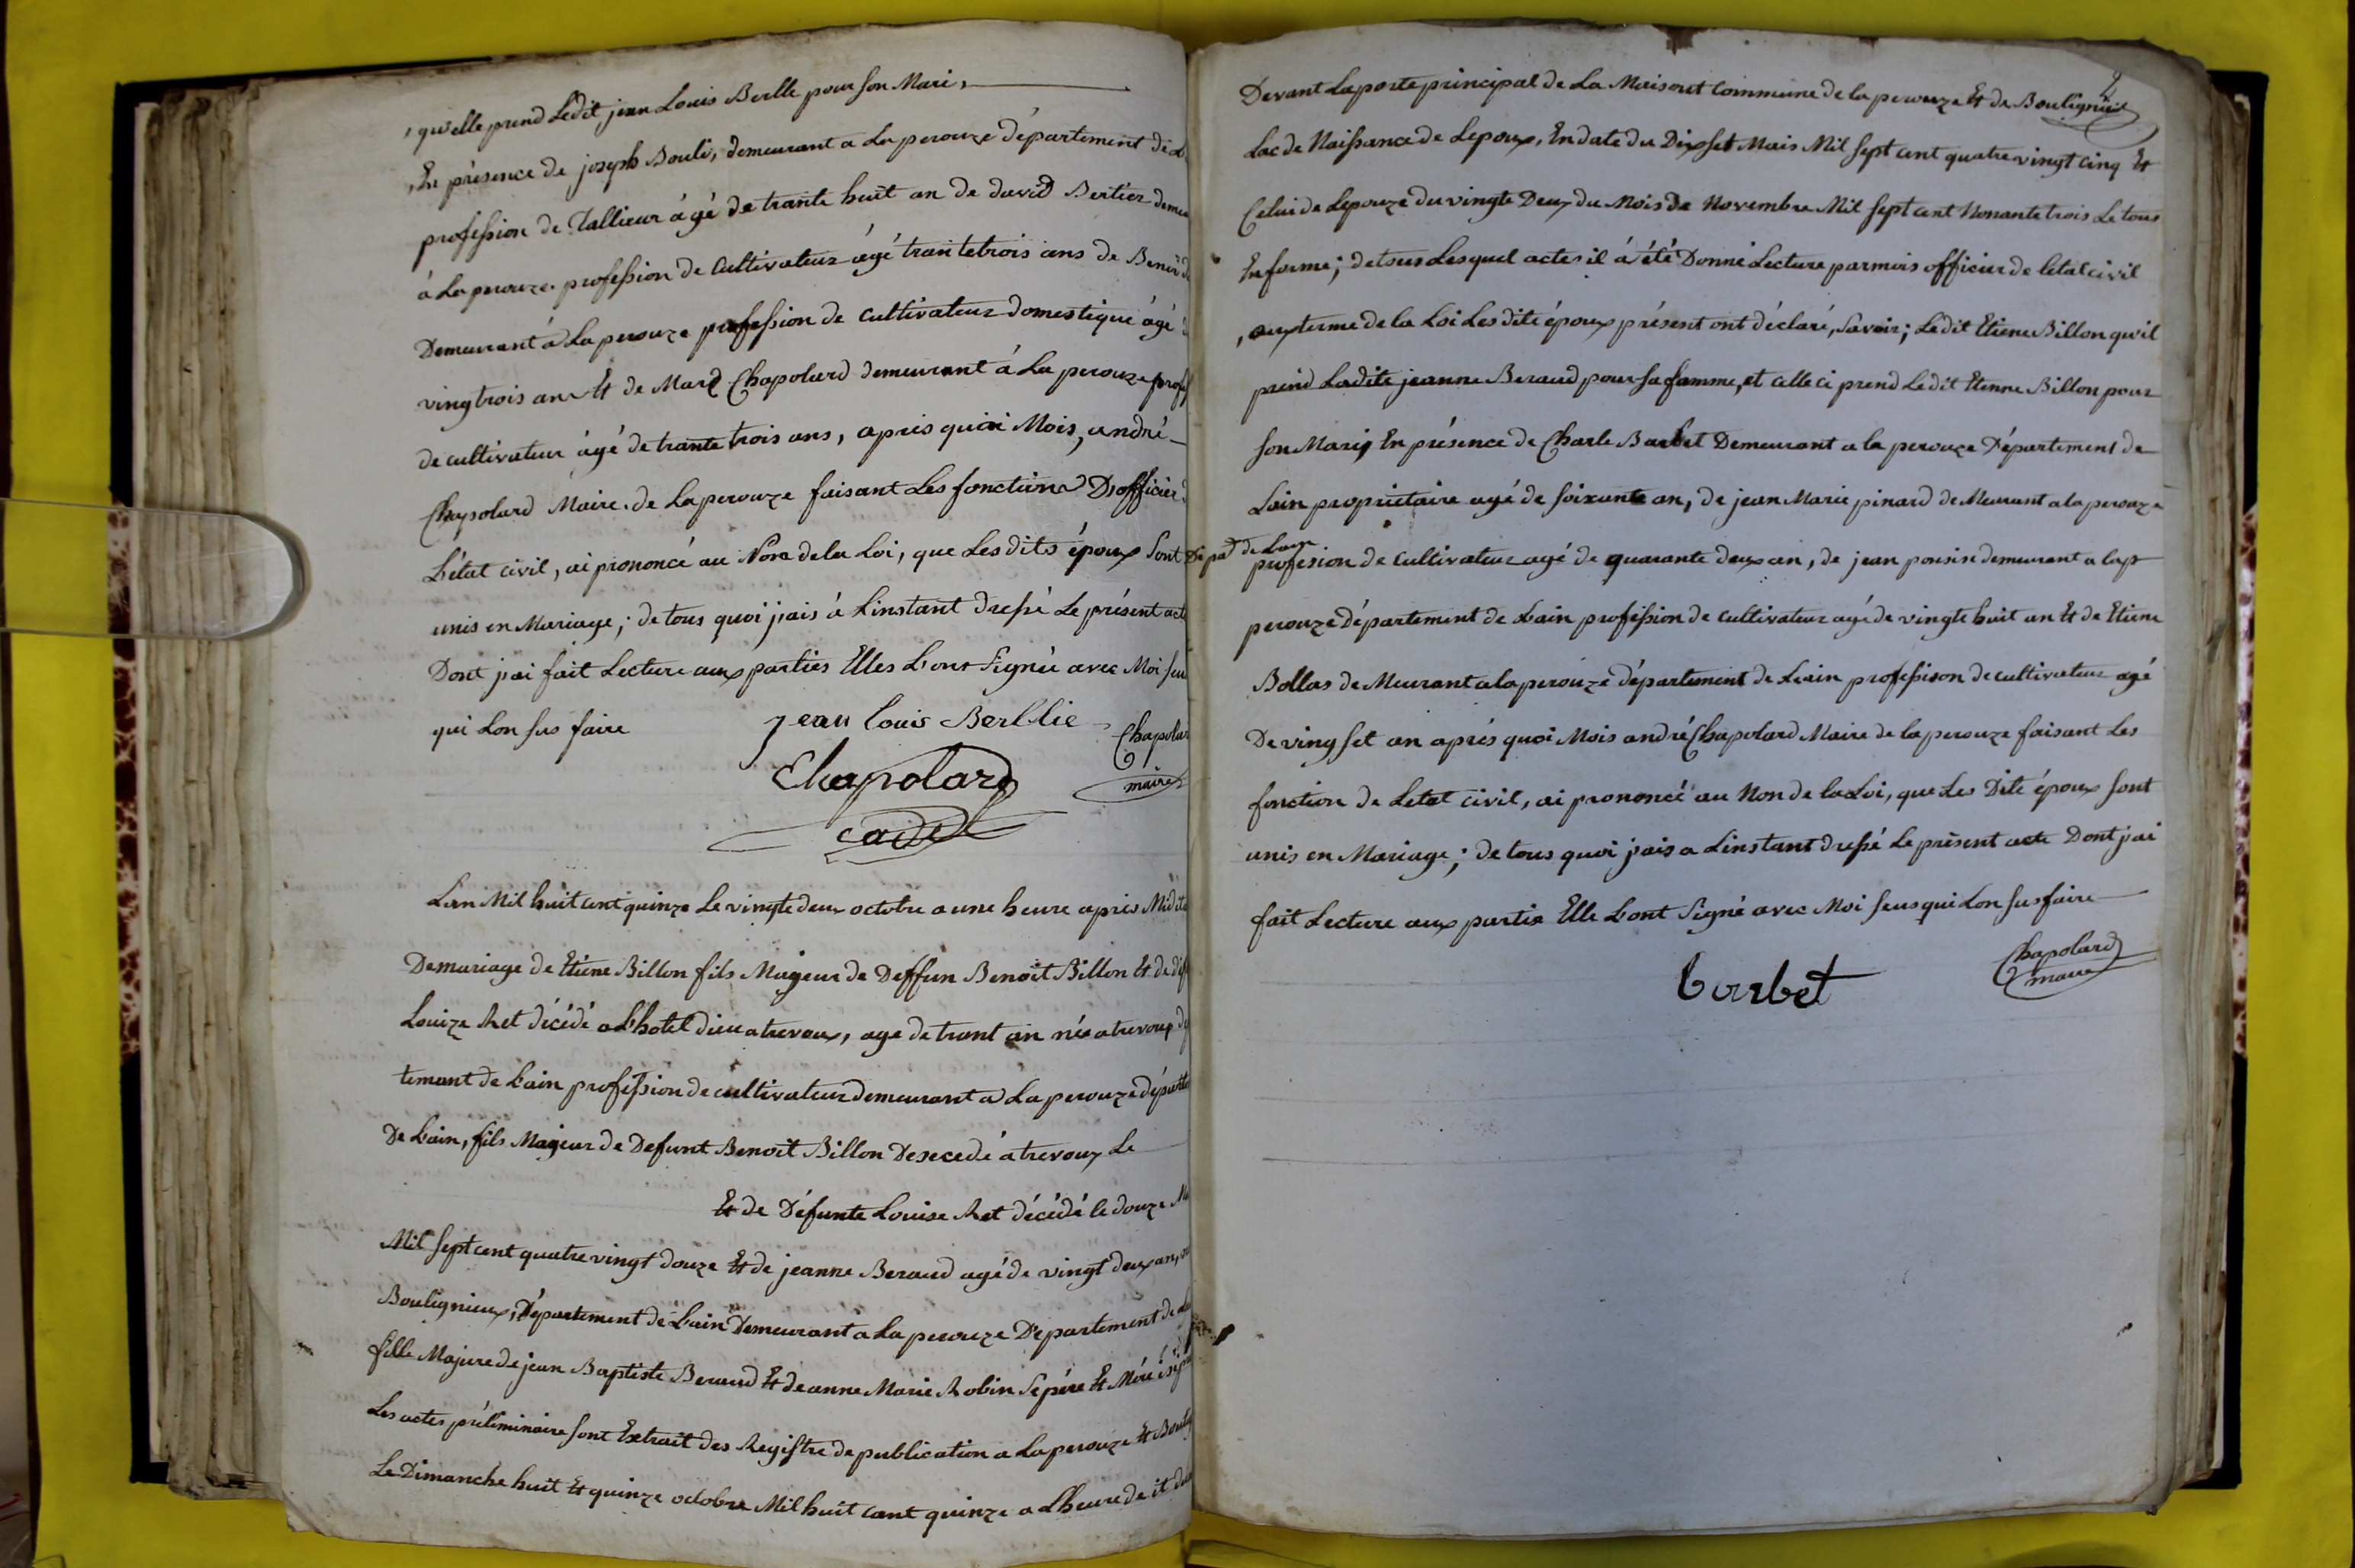 , qu'elle prend Ledit jean Louis Berlle pour son Mari,
, En présence de joseph Bouli, demeurant a La perouze département de L
profession de Tallieur âgé de trante huit an de david Bertier demeu
à La perouze profession de Cultivateur âgé trante trois ans de Benoi
Demeurant à La perouze profession de cultivateur domestique âgé
vingtrois an Et de Marc Chapolard demeurant à La perouze profes
de cultivateur âgé de trante trois ans, apris quoi Mois, andré
Chapolard Maire de Laperouze faisant Les fonctions D'officier
L'état civil, ai prononcé au Nom de la Loi, que Les dits époux Sont
unis en Mariage; de tous quoi jais à Linstant dressé Le présent acte
Dont jai fait Lecture aux parties Elles L'ont Signée avec Moi seu
qui Lon sus faire
jean louis Berllie
Chapolar
maire
Chapolard
cadet
Lan Mil huit cent quinze Le vingte deux octobre a une heure après Midi
De mariage de Etiene Billon fils Majeur de Deffun Benoit Billon Et de déf
Louize Ret décédé a L'hotel dieu a trevoux, age de trant an née a trevoux
temant de Lain profession de cultivateur demeurant a La perouze départe
De Lain, fils Majeur de Defunt Benoit Billon Desecedé a trevoux Le
Et de Défunte Louise Ret décédé le douze M
Mil sept cent quatre vingt douze Et de jeanne Beraud agé de vingt deux an,
Bouligneux, Département de Lain Demeurant a La perouze Département de La
fille Majure de jean Baptiste Beraud Et de anne Marie Robin Sepére Et Mére
Les actes préliminaire sont Extrait des Registre de publication a La perouze Et Bouli
Le Dimanche huit Et quinze octobre Mil huit cant quinze a Lheure de
2
Devant La porte principal de La Maisont Commune de la perouze Et de Bouligneux
Lac de Naissance de Lepoux, En date du Dix set Mais Mil sept cent quatre vingt cinq Et
Celui de Lepouze du vingte Deux du Mois De Novembre Mil sept cent Nonante trois Le tous
En forme; de tous Lesquel actes il à été Donné Lecture parmois officier de letat civil
, aux terme de la Loi Les dite époux présent ont déclaré, Savoir; Ledit Etiene Billon qu'il
prend Ladite jeanne Beraud pour sa famme, et celle ci prend Ledit Etienne Billon pour
son Mari, En présence de Charle Barbet Demeurant a la perouze Département de
Lain propriétaire agé de soixante an, de jean Marie pinard de Meurant a la perouze
Dépat de Lain profesion de cultivateur agé de quarante deux an, de jean ponsin demeurant a lap
perouze département de Lain profession de cultivateur agé de vingte huit an Et de Etiene
Bollas de Meurant a la perouze département de Lain professison de cultivateur agé
De ving set an aprés quoi Mois andré Chapolard Maire de la perouze faisant Les
fonction de Letat civil, ai prononcé au Non de la Loi, que Les Dite époux sont
unis en Mariage; de tous quoi jais a Linstant dressé Le présent acte Dont jai
fait Lecture aux partie Elle L'ont Signé avec Moi seus qui Lon sus faire
barbet
Chapolard
maire